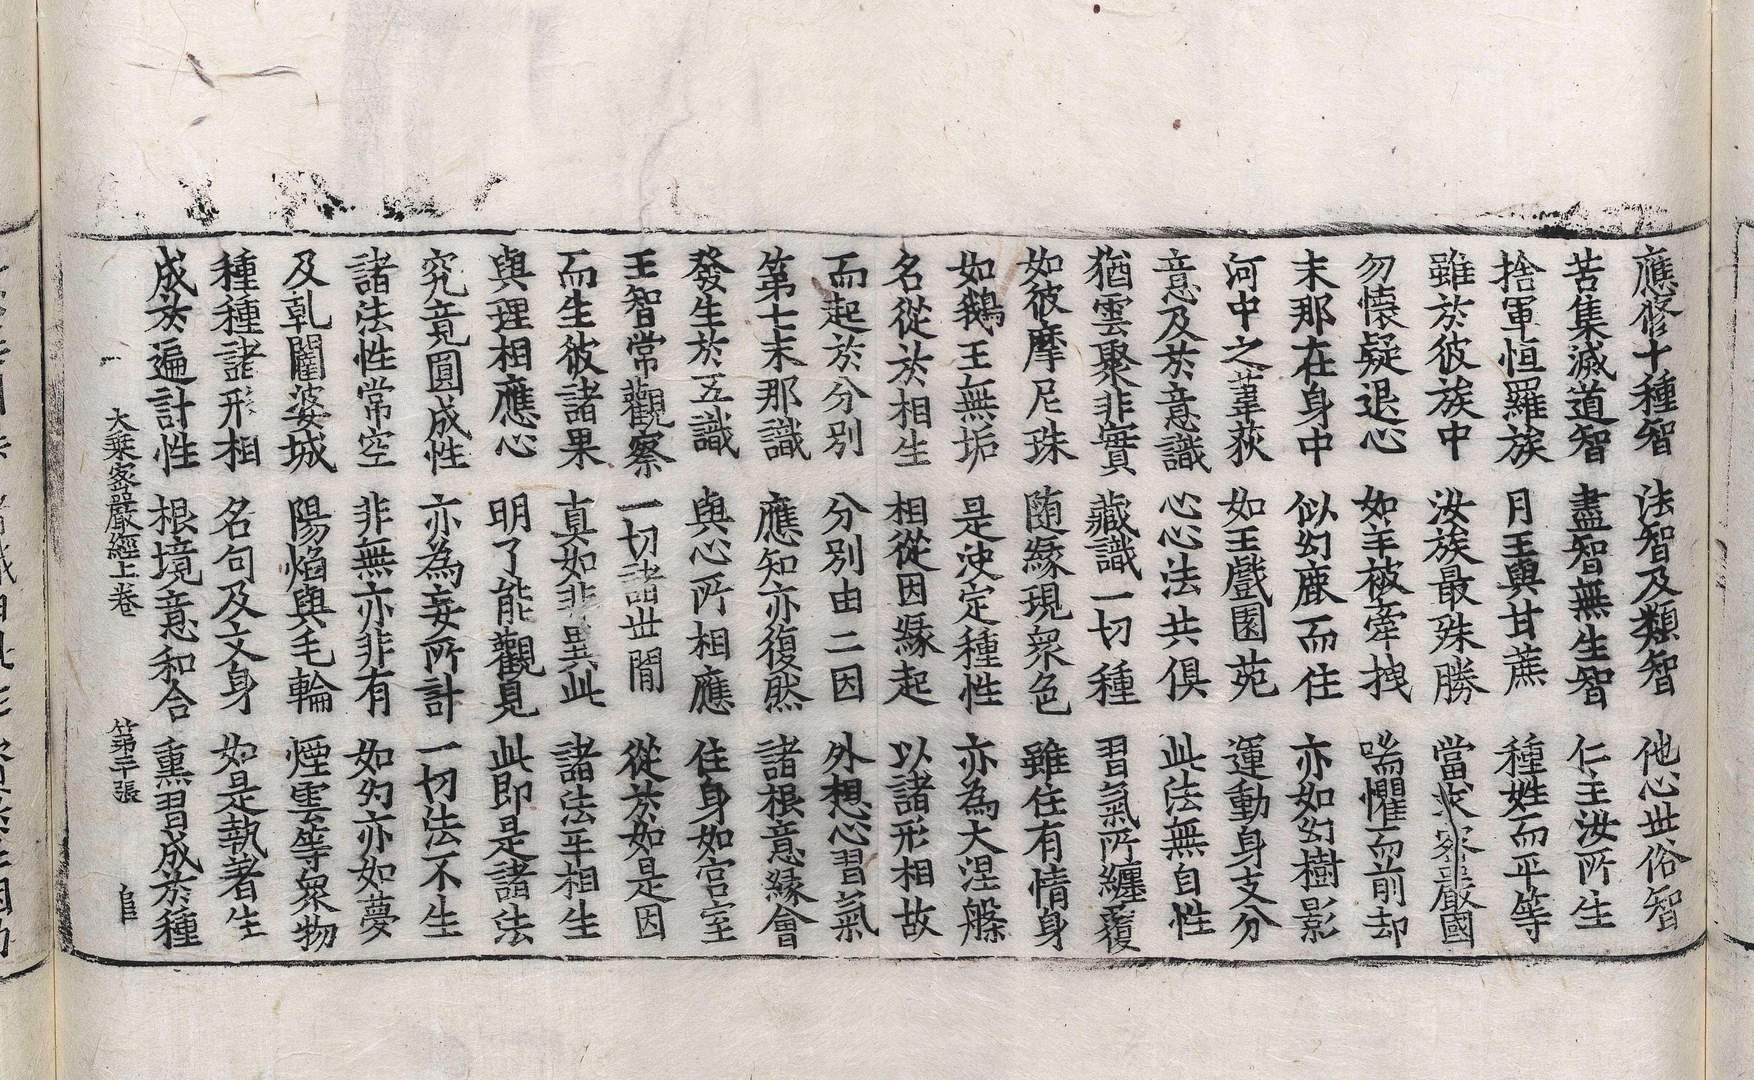 應修十種智 法智及類智 他心世俗智
苦集滅道智 盡智無生智 仁主汝所生
捨軍恒羅族 月王與甘蔗 種姓而平等
雖於彼族中 汝族最殊勝 當求密嚴國
勿懷疑退心 如羊被牽拽 喘懼而前却
末那在身中 似幻鹿而住 亦如幻樹影
河中之葦荻 如王戲園苑 運動身支分
意及於意識 心心法共俱 此法無自性
猶雲聚非實 藏識一切種 習氣所纏覆
如彼摩尼珠 随緣現衆色 雖住有情身
如鵝王無垢 是決定種性 亦為大涅槃
名從於相生 相從因緣起 以諸形相故
而起於分別 分別由二因 外想心習氣
第七末那識 應知亦復然 諸根意緣會
發生於五識 與心所相應 住身如宮室
王智常觀察 一切諸世間 從於如是因
而生彼諸果 真如非異此 諸法互相生
與理相應心 明了能觀見 此即是諸法
究竟圓成性 亦為妄所計 一切法不生
諸法性常空 非無亦非有 如幻亦如夢
及乹闥婆城 陽焰與毛輪 煙雲等衆物
種種諸形相 名句及文身 如是執著生
成於遍計性 根境意和合 熏習成於種
大乘密嚴經上卷 第二張